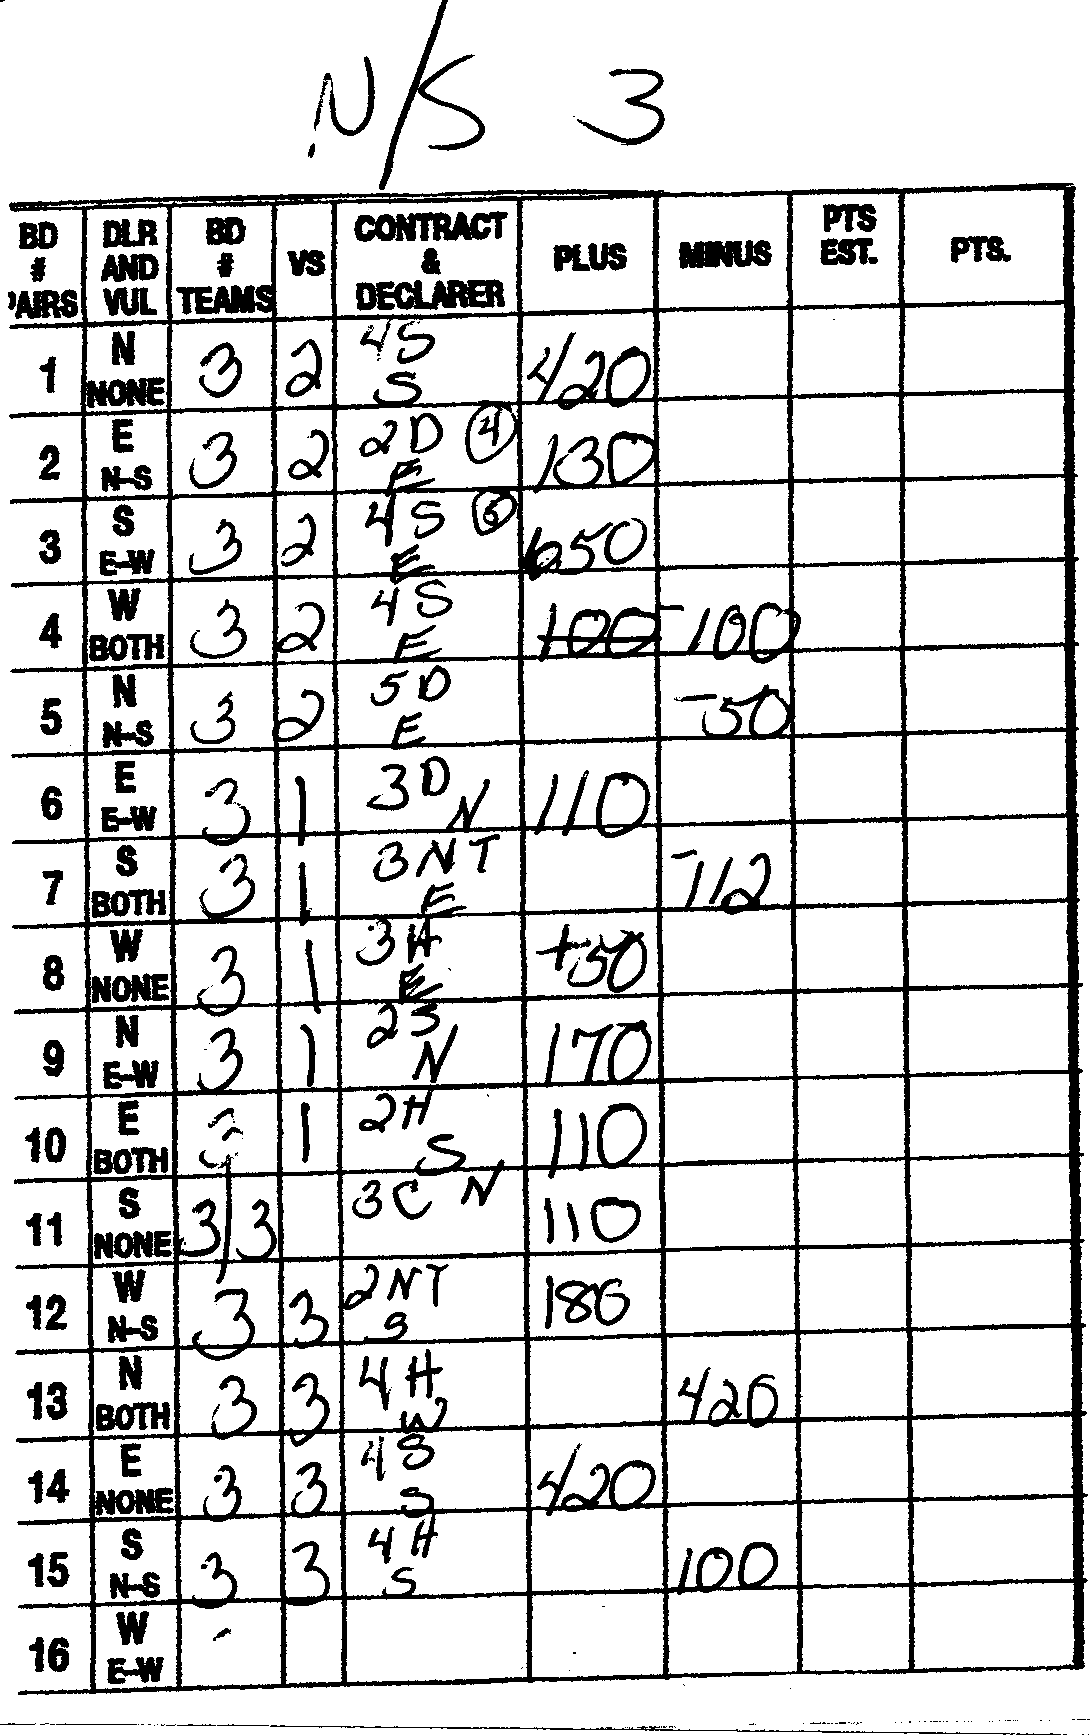 N/S 3
BD # PAIRS DLR AND VUL BD # TEAMS VS CONTRACT & DECLARER PLUS MINUS PTS EST. PTS.
1 N NONE 3 2 4S S 420
2 E N-S 3 2 2D 4 E 130
3 S E-W 3 2 4S E 650
4 W BOTH 3 2 4S E 100 -100
5 N N-S 3 2 5D E -50
6 E E-W 3 1 3D N 110
7 S BOTH 3 1 3NT E -112
8 W NONE 3 1 3H E +50
9 N E-W 3 1 2S N 170
10 E BOTH 3 1 2H S 110
11 S NONE 3/3 3C N 110
12 W N-S 3 3 2NT S 180
13 N BOTH 3 3 4H W 420
14 E NONE 3 3 4S S 420
15 S N-S 3 3 4H S 100
16 W E-W